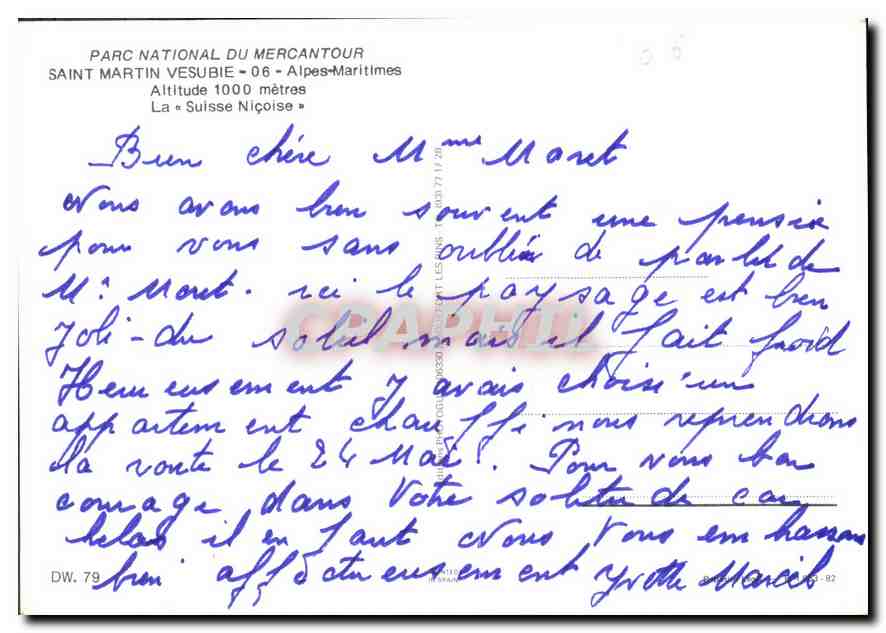 PARC NATIONAL DU MERCANTOUR
SAINT MARTIN VESUBIE - 06 - Alpes-Maritimes
Altitude 1000 mètres
La « Suisse Niçoise »
Bien chère Mme Maret
Nous avons bien souvent une pensée
pour vous sans oublier de parler de
Mr Maret. ici le paysage est bien
joli - du soleil mais il fait froid
Heureusement j avais choisi un
appartement chauffé nous reprendrons
la route le 24 Mai. Pour vous bon
courage dans votre solitude car
helas il en faut Nous vous embrassons
bien affectueusement Yvette Marcel
CPAPHIL
DW. 79
PRINTED
IN SPAIN